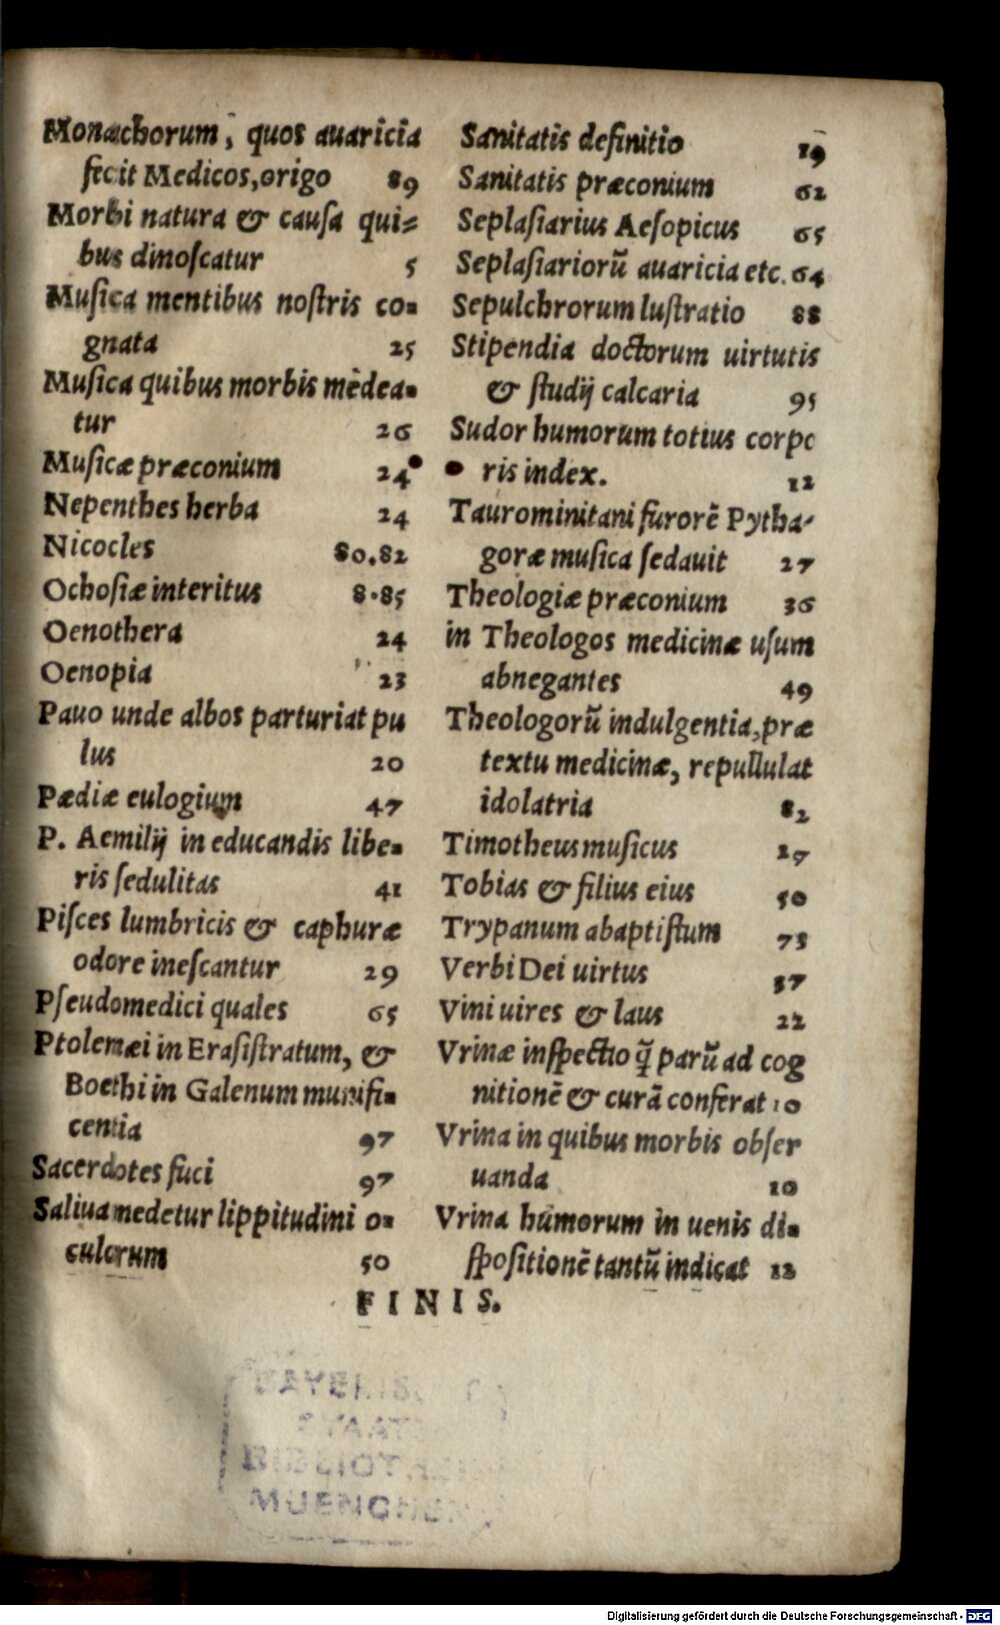 Monachorum, quos auaricia
fecit Medicos, origo 89
Morbi natura & causa qui=
bus dinoscatur 5
Musica mentibus nostris co=
gnata 25
Musica quibus morbis medea=
tur 26
Musicæ præconium 24
Nepenthes herba 24
Nicocles 80.82
Ochosiæ interitus 8.85
Oenothera 24
Oenopia 23
Pauo unde albos parturiat pu
lus 20
Pædiæ eulogium 47
P. Aemilij in educandis libe=
ris sedulitas 41
Pisces lumbricis & caphuræ
odore inescantur 29
Pseudomedici quales 65
Ptolemæi in Erasistratum, &
Boethi in Galenum munifi=
centia 97
Sacerdotes fuci 97
Saliua medetur lippitudini o=
culorum 50
Sanitatis definitio 19
Sanitatis præconium 62
Seplasiarius Aesopicus 65
Seplasiariorũ auaricia etc. 64
Sepulchrorum lustratio 88
Stipendia doctorum uirtutis
& studij calcaria 95
Sudor humorum totius corpo
ris index. 12
Taurominitani furorẽ Pytha-
goræ musica sedauit 27
Theologiæ præconium 36
in Theologos medicinæ usum
abnegantes 49
Theologorũ indulgentia, præ
textu medicinæ, repullulat
idolatria 82
Timotheus musicus 27
Tobias & filius eius 50
Trypanum abaptistum 73
Verbi Dei uirtus 37
Vini uires & laus 22
Vrinæ inspectio q̃ parũ ad cog
nitionẽ & curã conferat 10
Vrina in quibus morbis obser
uanda 10
Vrina humorum in uenis di=
spositionẽ tantũ indicat 12
FINIS.
BAYERIS
STAATS
BIBLIOTHEK
MUENCHEN
Digitalisierung gefördert durch die Deutsche Forschungsgemeinschaft - DFG